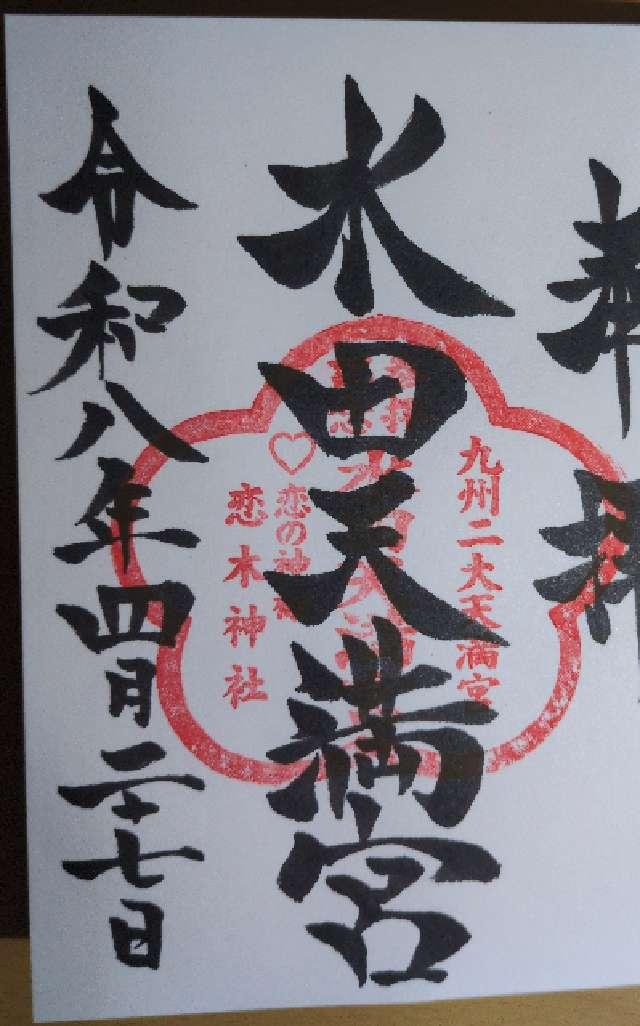 奉拝
水田天満宮
九州二大天満宮
水田天満宮
♡恋の神様
恋木神社
令和八年四月二十七日